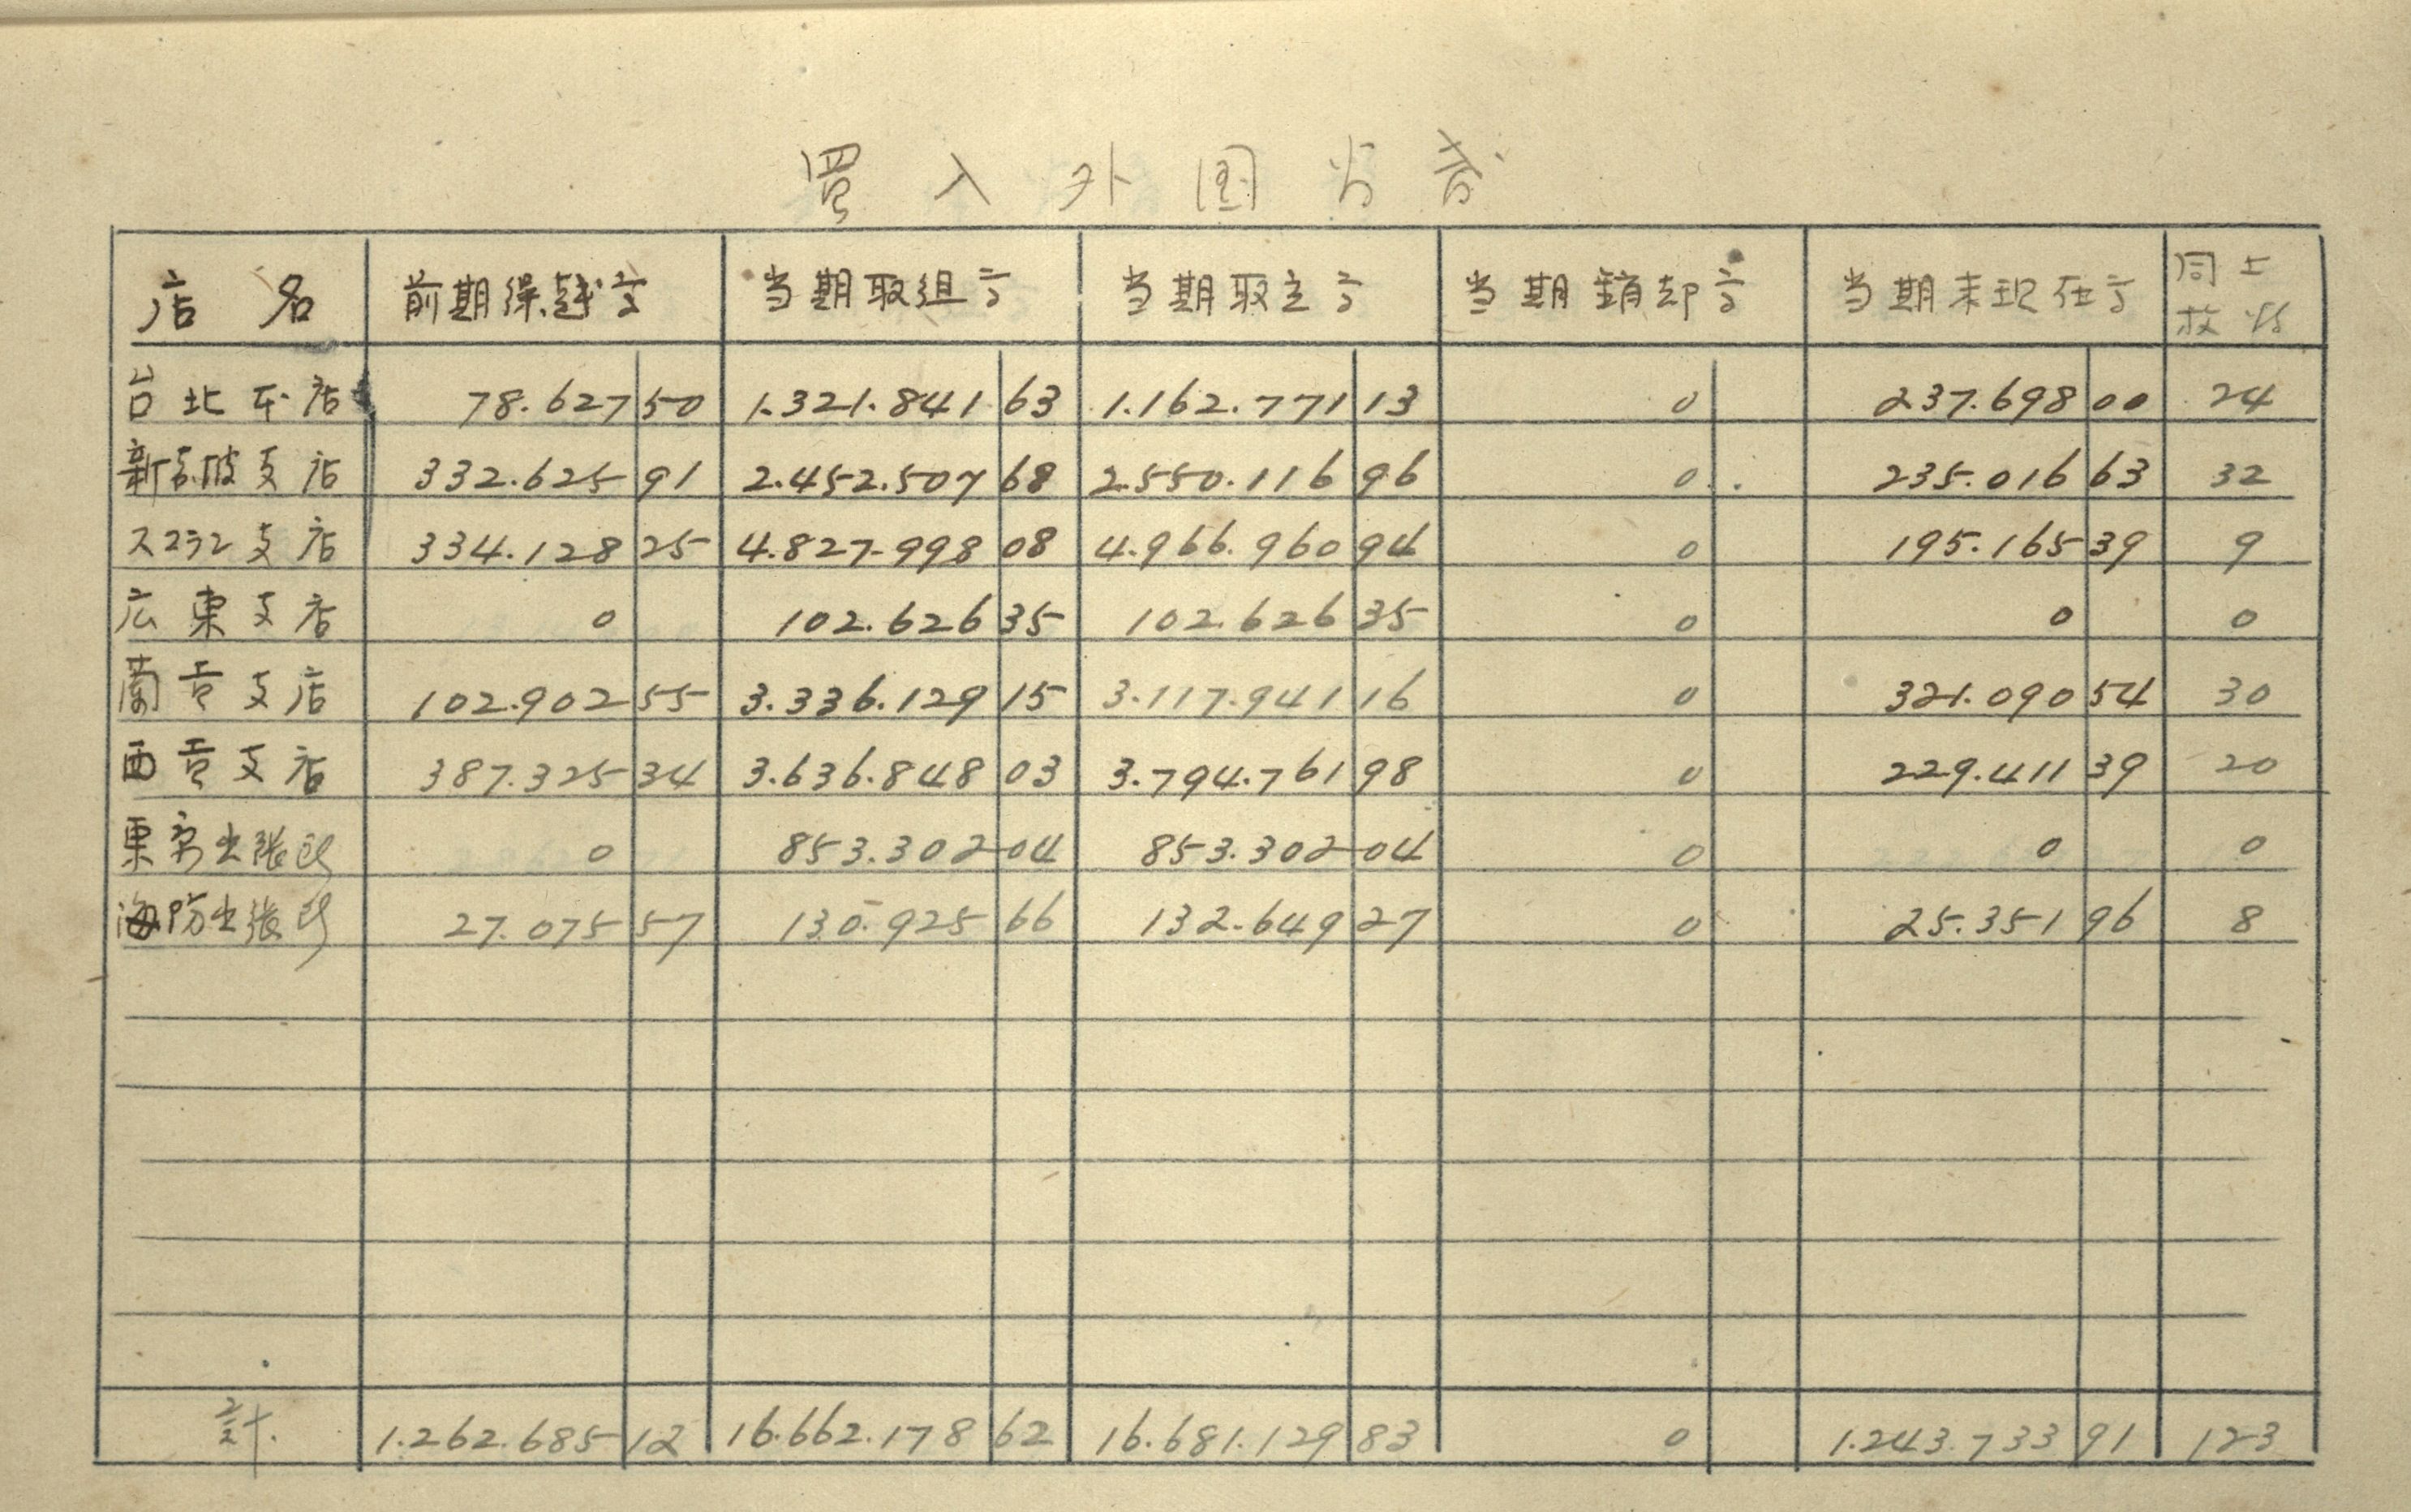 買入外国為替
店名 前期繰越高 当期取組高 当期取立高 当期銷却高 当期末現在高 同上枚数
台北本店 78.627 50 1.321.841 63 1.162.771 13 0 237.698 00 24
新嘉坡支店 332.625 91 2.452.507 68 2.550.116 96 0 235.016 63 32
スラバヤ支店 334.128 25 4.827.998 08 4.966.960 94 0 195.165 39 9
広東支店 0 102.626 35 102.626 35 0 0 0
蘭貢支店 102.902 55 3.336.129 15 3.117.941 16 0 321.090 54 30
西貢支店 387.325 34 3.636.848 03 3.794.761 98 0 229.411 39 20
東京出張所 0 853.302 04 853.302 04 0 0 0
海防出張所 27.075 57 130.925 66 132.649 27 0 25.351 96 8
計 1.262.685 12 16.662.178 62 16.681.129 83 0 1.243.733 91 123